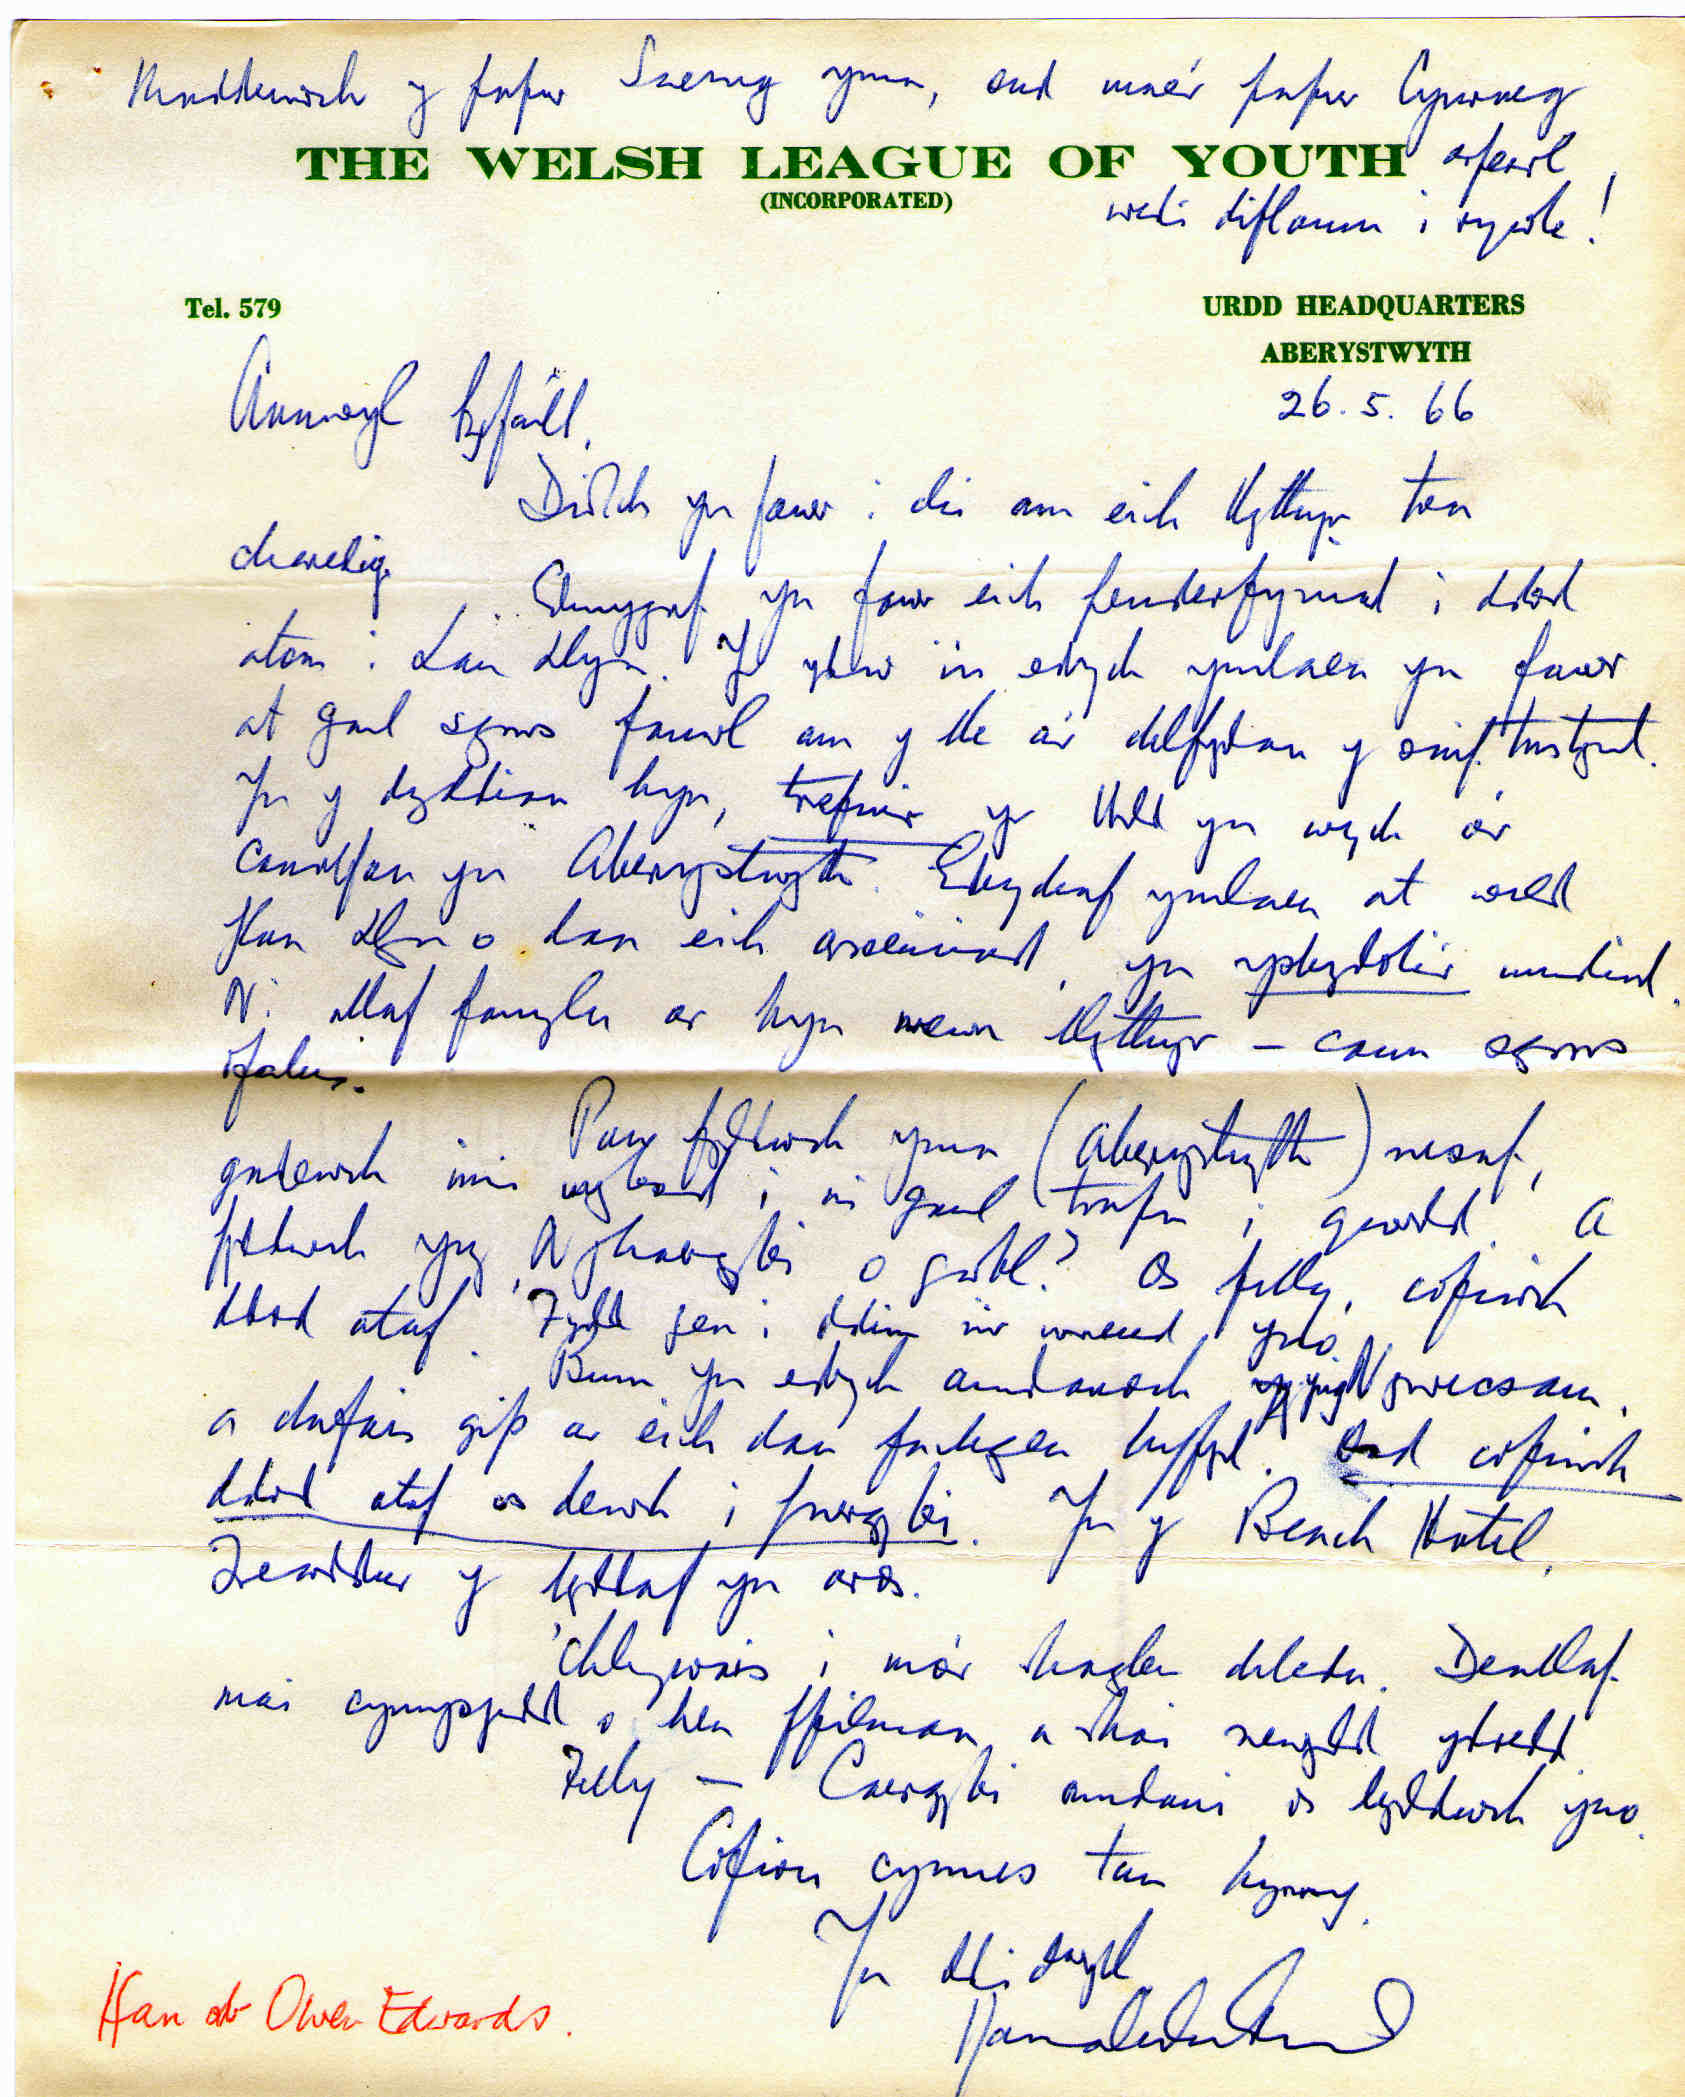 Maddeuwch y papur Saesneg yma, ond mae'r papur Cymraeg
THE WELSH LEAGUE OF YOUTH arferol
(INCORPORATED)
wedi diflannu i rywle!
Tel. 579
URDD HEADQUARTERS
ABERYSTWYTH
26. 5. 66
Annwyl Gyfaill,
Diolch yn fawr i chi am eich llythyr tra
charedig.
Edmygaf yn fawr eich penderfyniad i ddod
atom i Lan Llyn. Yr ydw i'n edrych ymlaen yn fawr
at gael sgwrs fanwl am y lle a'r delfrydau y
Yn y dyddiau hyn, trefnir yr Urdd yn wych o'r
canolfan yn Aberystwyth. Edrychaf ymlaen at weld
Glan Llyn o dan eich arweiniad, yn ysbrydoli'r mudiad.
Ni allaf fanylu ar hyn mewn llythyr – cawn sgwrs
ofalus.
Pan fyddwch yma (Aberystwyth) nesaf,
gadewch imi wybod i ni gael trafod i gwrdd. A
fyddwch yng Nghaergybi o gwbl? Os felly, cofiwch
ddod ataf. Fydd gen i ddim i'w wneud yno.
Bum yn edrych amdanoch yng Ngwrecsam,
a chefais gip ar eich dau fachgen hyfryd. Ond cofiwch
ddod ataf os dewch i Gaergybi. Yn y Beach Hotel,
Trearddur y byddaf yn aros.
'Chlywais i mo'r rhaglen deledu. Deallaf
mai cymysgedd o hen ffilmiau a rhai newydd ydoedd.
Felly – Caergybi amdani os byddwch yno.
Cofion cynnes tan hynny,
Yn ddi
Ifan ab Owen Edwards
Ifan ab Owen Edwards.